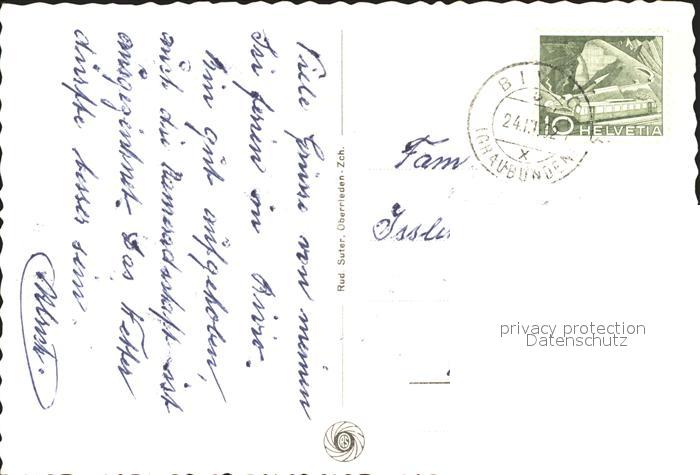 Viele Grüsse von meinen
Ski ferien in Bivio.
Bin gut aufgehoben,
auch die Kameradschaft ist
ausgezeichnet. Das Wetter
dürfte besser sein.
Rud. Suter, Oberrieden-Zch.
10 HELVETIA
24.
X
(GRAUBÜNDEN)
Fam
privacy protection
Datenschutz